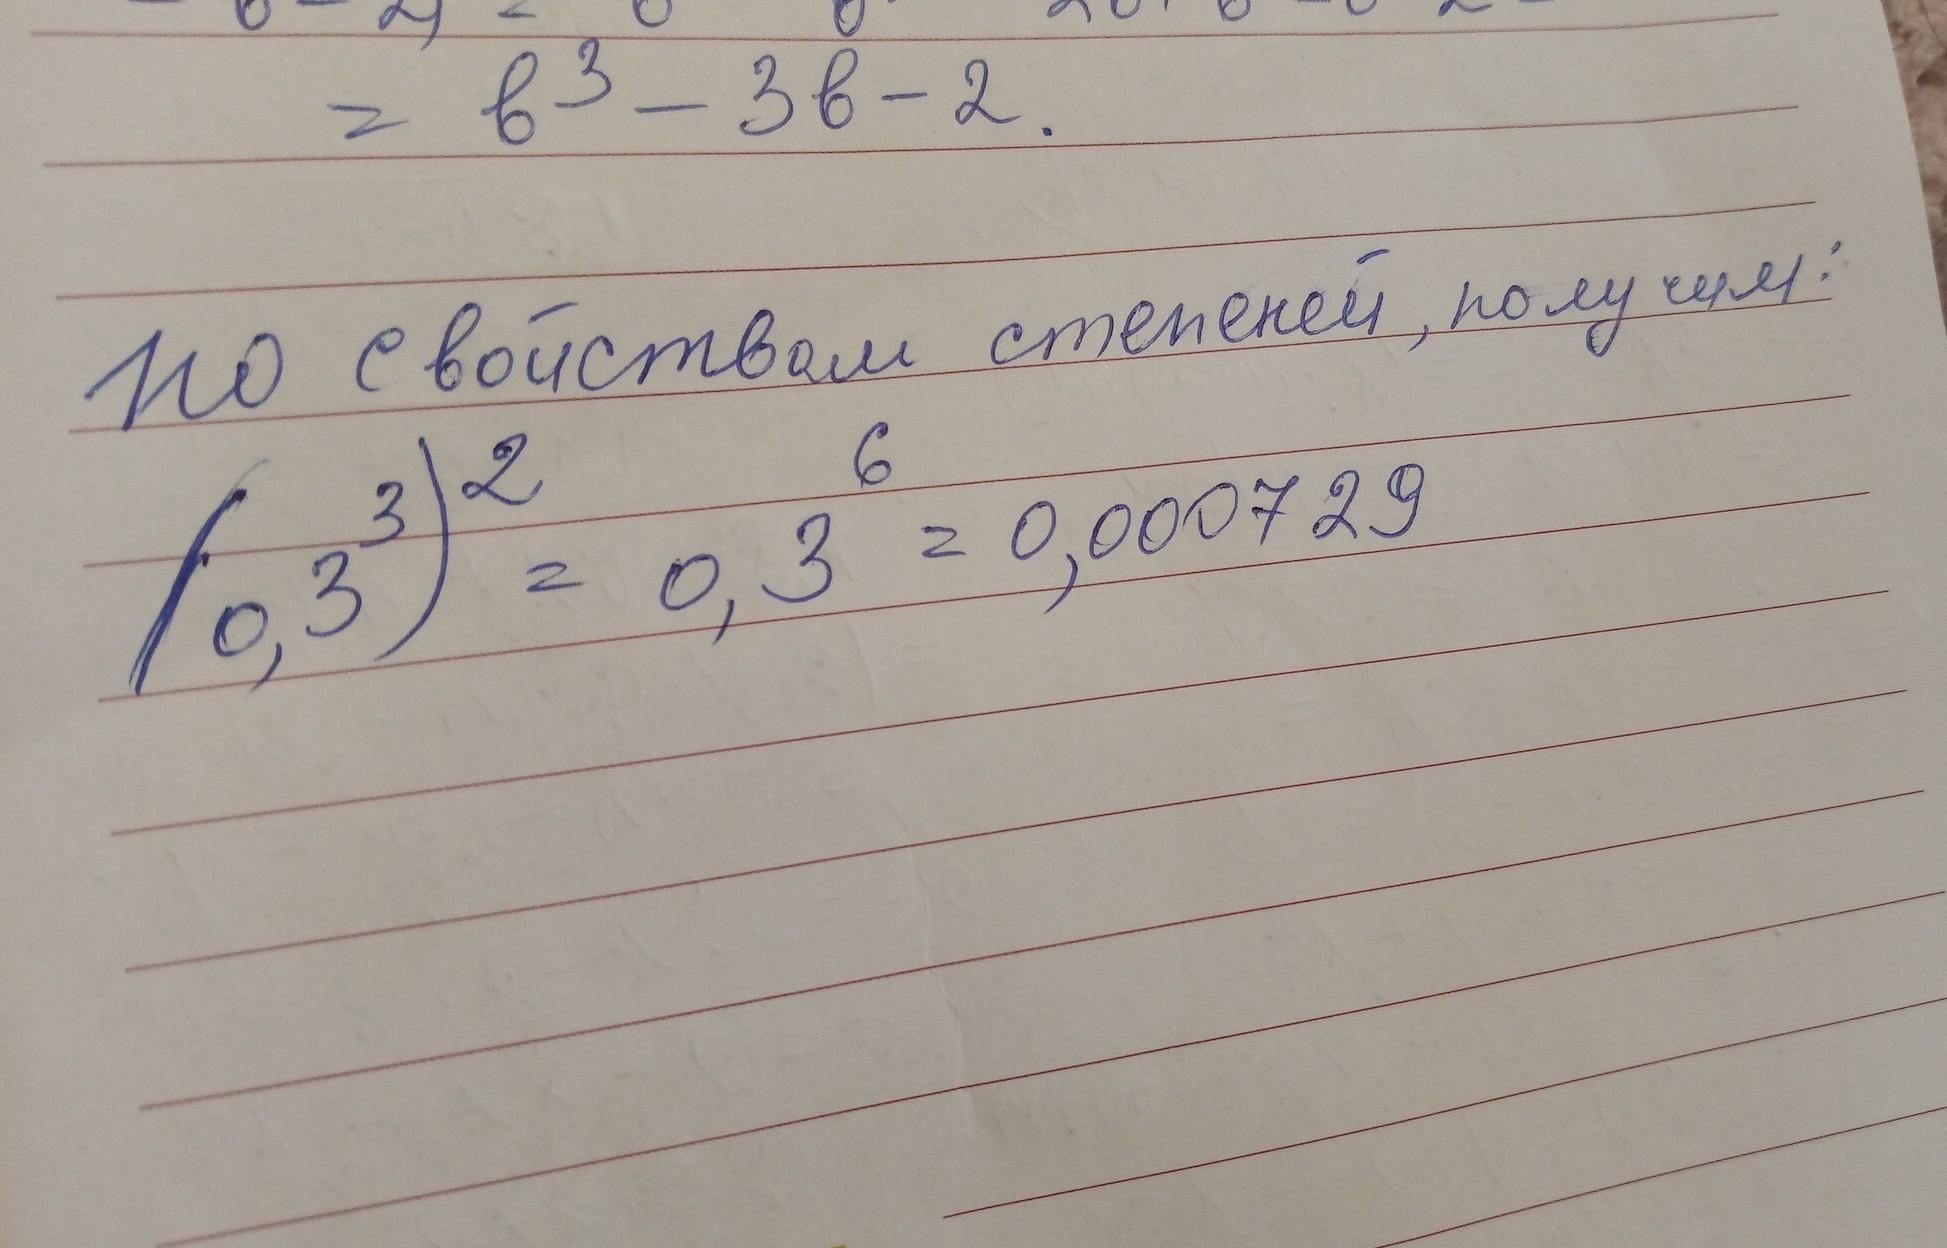 = в³ - 3в - 2.
По свойствам степеней, получим:
(0,3³)² = 0,3⁶ = 0,000729